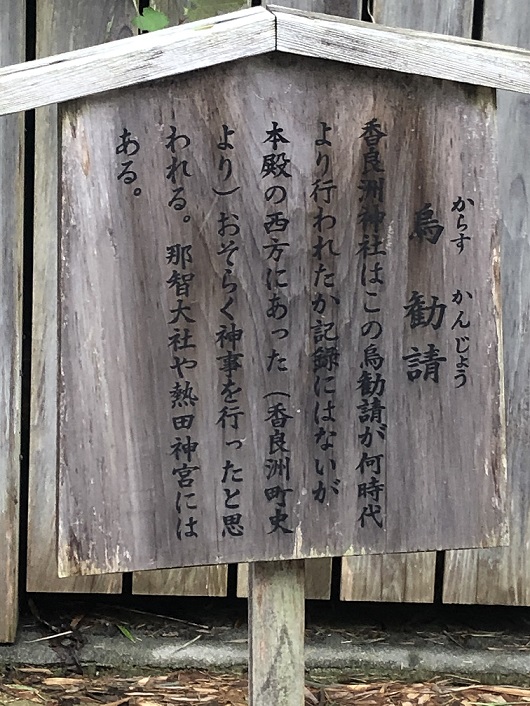 からす かんじょう
烏 勧請
香良洲神社はこの烏勧請が何時代
より行われたか記録にはないが
本殿の西方にあった(香良洲町史
より)おそらく神事を行ったと思
われる。那智大社や熱田神宮には
ある。